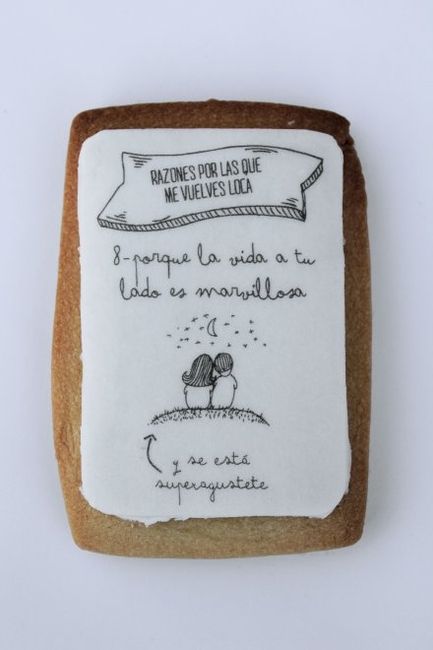 RAZONES POR LAS QUE
ME VUELVES LOCA
8-porque la vida a tu
lado es marvillosa
y se está
superagustete